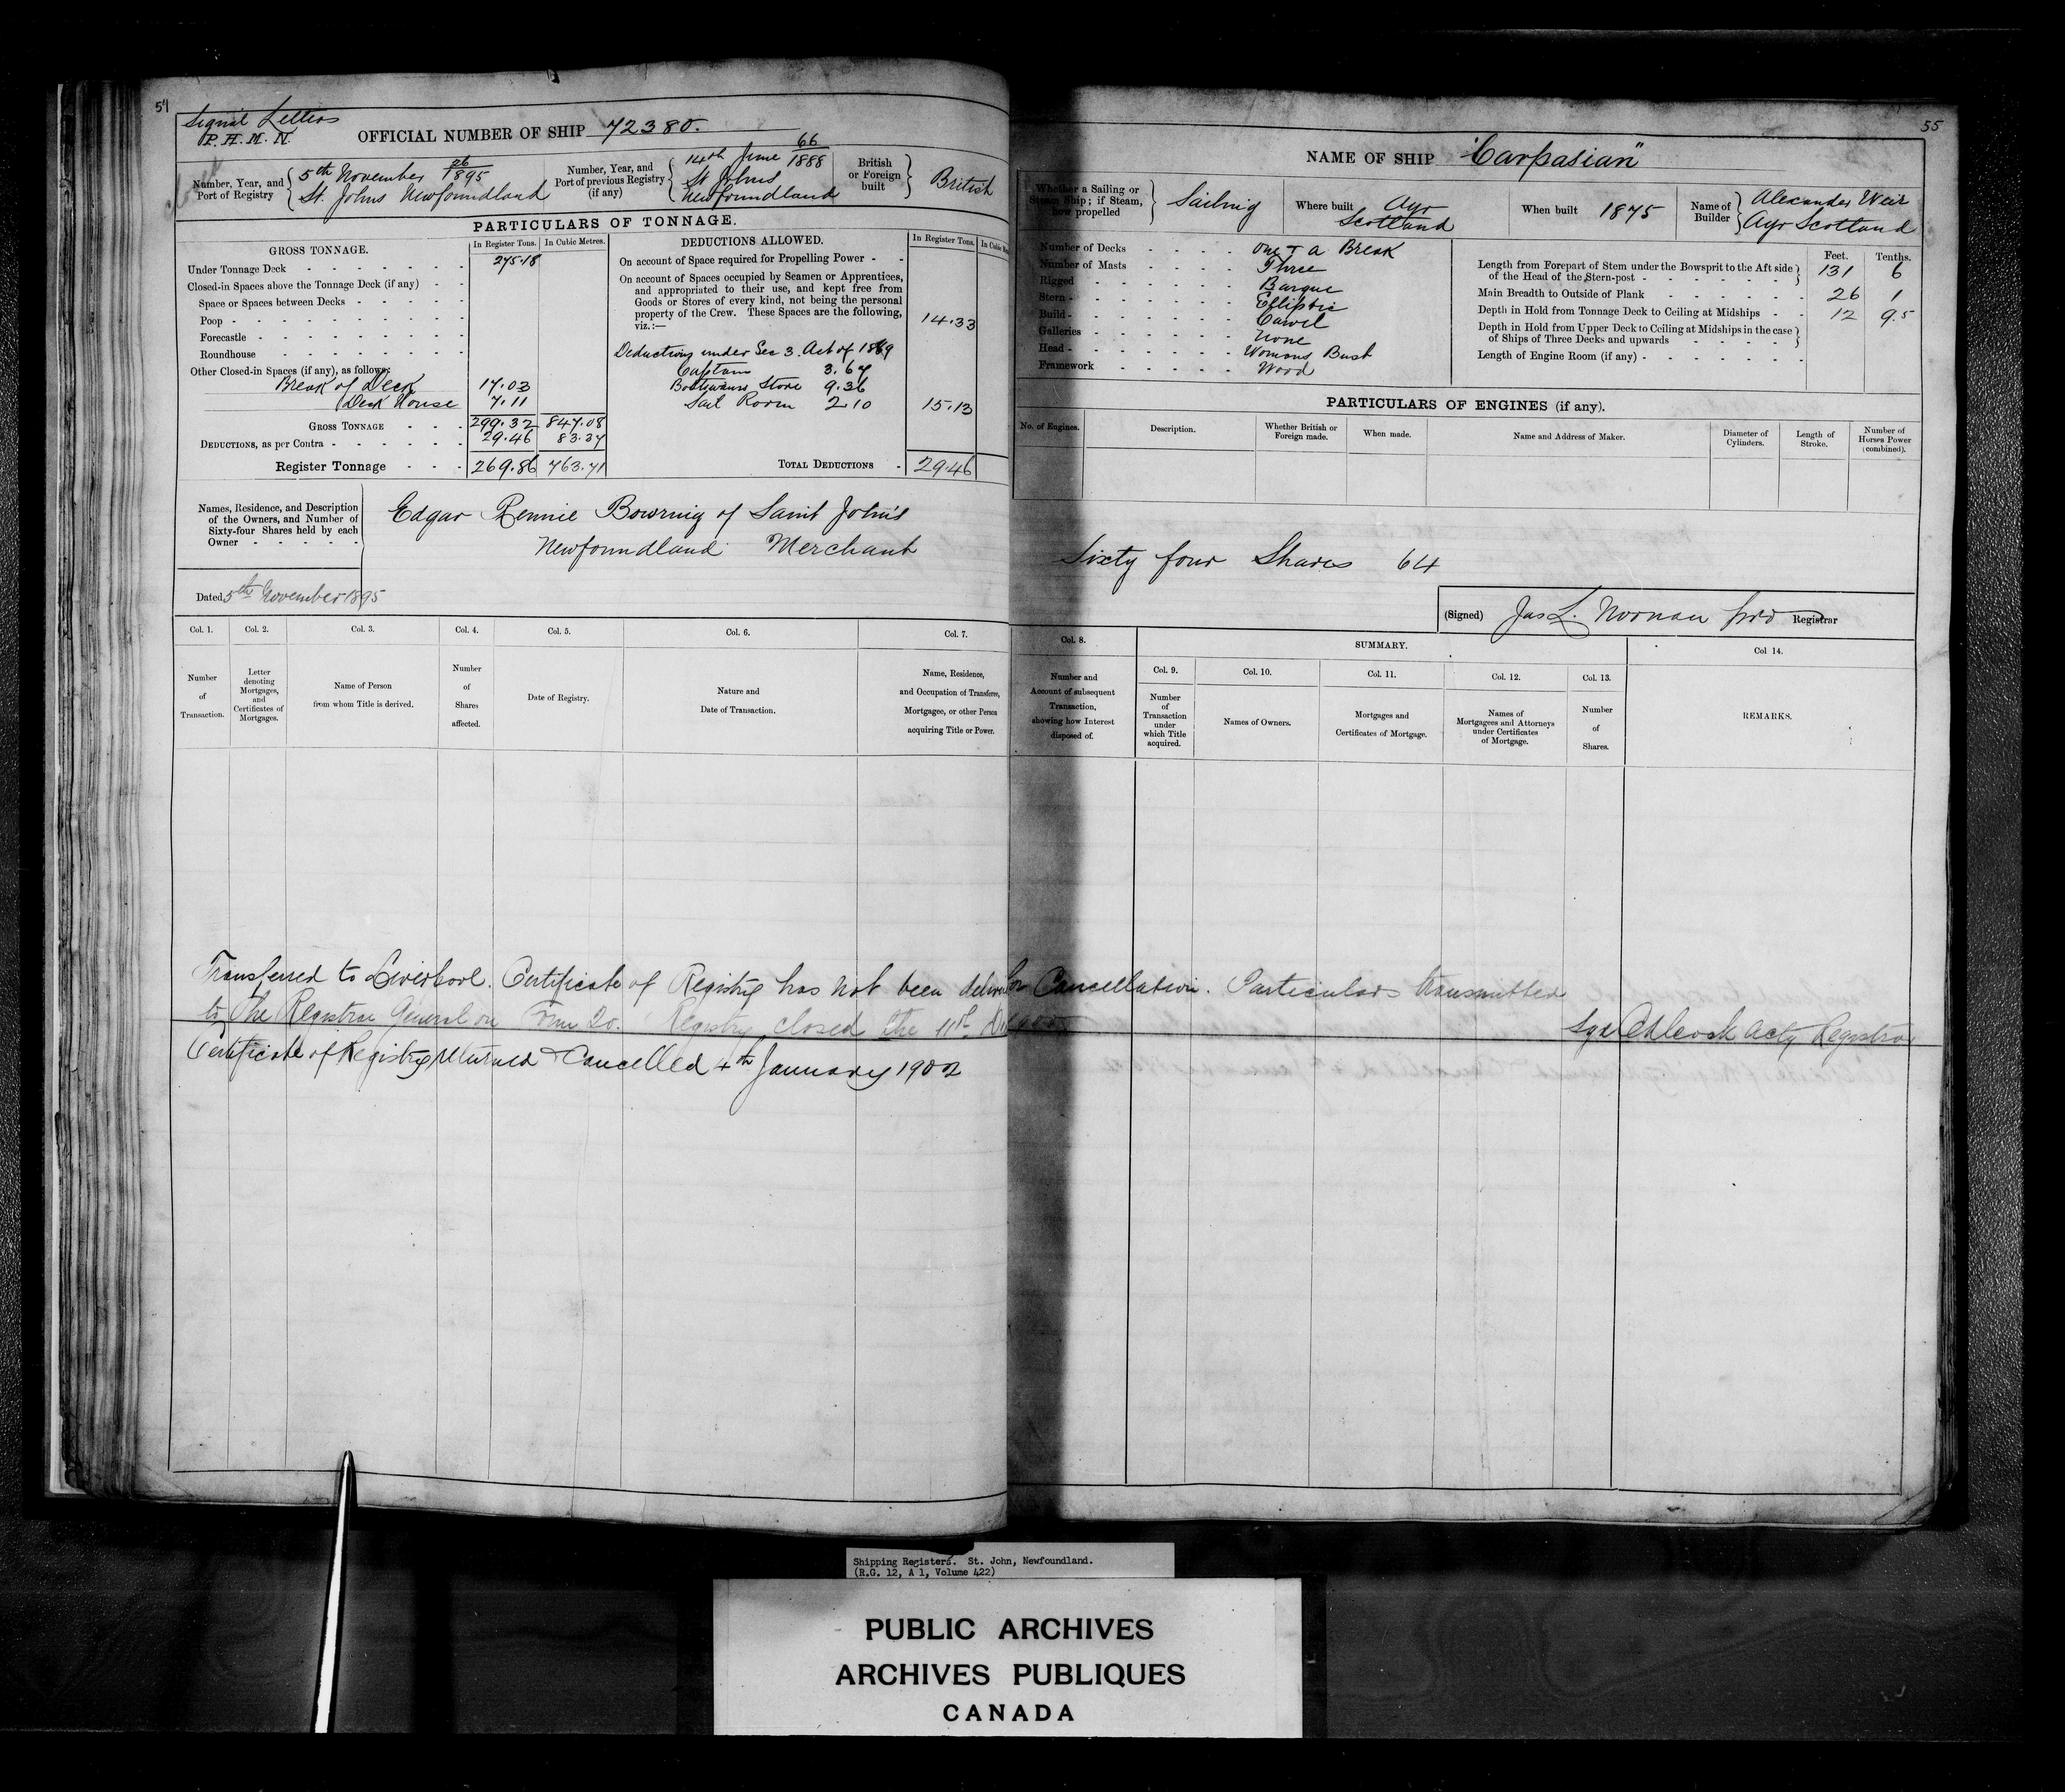 54
Signal Letters
P. H. M. N.
OFFICIAL NUMBER OF SHIP 72380.
Number, Year, and Port of Registry
5th November 26/1895
St. Johns Newfoundland
Number, Year, and Port of previous Registry (if any)
14th June 66/1888
St Johns
Newfoundland
British or Foreign built
British
PARTICULARS OF TONNAGE.
GROSS TONNAGE.
In Register Tons.
In Cubic Metres.
Under Tonnage Deck - 275.18
Closed-in Spaces above the Tonnage Deck (if any) - -
Space or Spaces between Decks - - - - -
Poop - - - - - - -
Forecastle - - - - - -
Roundhouse - - - - - -
Other Closed-in Spaces (if any), as follows:
Break of Deck 17.03
Deck House 7.11
GROSS TONNAGE - - - 299.32 847.08
DEDUCTIONS, as per Contra - - - - - 29.46 83.37
Register Tonnage - - - 269.86 763.71
DEDUCTIONS ALLOWED.
In Register Tons.
On account of Space required for Propelling Power - -
On account of Spaces occupied by Seamen or Apprentices,
and appropriated to their use, and kept free from
Goods or Stores of every kind, not being the personal
property of the Crew. These Spaces are the following,
viz.:— 14.33
Deductions under Sec 3. Act of 1889
Captain 3.67
Boatswains Store 9.36
Sail Room 2.10 15.13
TOTAL DEDUCTIONS - 29.46
Names, Residence, and Description
of the Owners, and Number of
Sixty-four Shares held by each
Owner - - - - -
Edgar Rennie Bowring of Saint John's
Newfoundland Merchant
Dated 5th November 1895
Col. 1.
Col. 2.
Col. 3.
Col. 4.
Col. 5.
Col. 6.
Col. 7.
Number of Transaction.
Letter denoting Mortgages, and Certificates of Mortgages.
Name of Person from whom Title is derived.
Number of Shares affected.
Date of Registry.
Nature and Date of Transaction.
Name, Residence, and Occupation of Transferee, Mortgagee, or other Person acquiring Title or Power.
55
NAME OF SHIP "Carpasian"
Whether a Sailing or Steam Ship; if Steam, how propelled
Sailing
Where built
Ayr
Scotland
When built 1875
Name of Builder
Alexander Weir
Ayr Scotland
Number of Decks - - - - One & a Break
Number of Masts - - - - Three
Rigged - - - - - Barque
Stern - - - - - Elliptic
Build - - - - - Carvel
Galleries - - - - - None
Head - - - - - Womans Bust
Framework - - - - - Wood
Feet.
Tenths.
Length from Forepart of Stem under the Bowsprit to the Aft side of the Head of the Stern-post - - - - - 131 6
Main Breadth to Outside of Plank - - - - - 26 1
Depth in Hold from Tonnage Deck to Ceiling at Midships - - 12 9.5
Depth in Hold from Upper Deck to Ceiling at Midships in the case of Ships of Three Decks and upwards - - - -
Length of Engine Room (if any) - - - - - -
PARTICULARS OF ENGINES (if any).
No. of Engines.
Description.
Whether British or Foreign made.
When made.
Name and Address of Maker.
Diameter of Cylinders.
Length of Stroke.
Number of Horses Power (combined).
Sixty four Shares 64
(Signed) Jas L. Noonan Registrar
Col. 8.
SUMMARY.
Col 14.
Col. 9.
Col. 10.
Col. 11.
Col. 12.
Col. 13.
Number and Account of subsequent Transaction, showing how Interest disposed of.
Number of Transaction under which Title acquired.
Names of Owners.
Mortgages and Certificates of Mortgage.
Names of Mortgagees and Attorneys under Certificates of Mortgage.
Number of Shares.
REMARKS.
Transferred to Liverpool. Certificate of Registry has not been for Cancellation. Particulars transmitted
to the Registrar General on Form 20. Registry closed the 11th
Acty Registrar
Certificate of Registry returned & Cancelled 4th January 1902
Shipping Registers. St. John, Newfoundland.
(R.G. 12, A 1, Volume 422)
PUBLIC ARCHIVES
ARCHIVES PUBLIQUES
CANADA